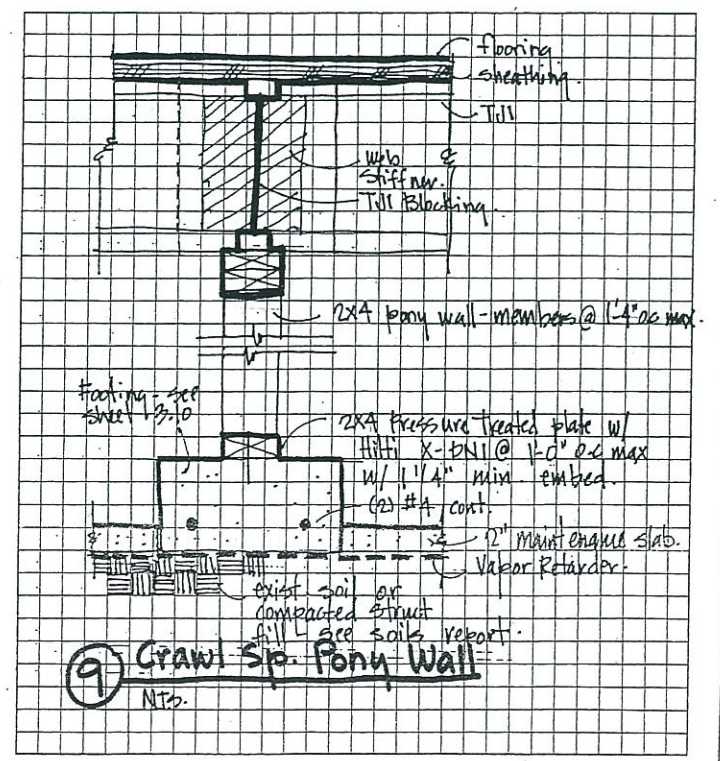 flooring
sheathing.
TJI
Web
Stiffner.
TJI Blocking.
2x4 pony wall-members @ 1'-4" oc max.
Footing - see
sheet 3.10
2x4 Pressure Treated plate w/
Hilti X-DNI @ 1'-0" o.c max
w/ 1 1/4" min. embed.
(2) #4 cont.
2" maintenance slab.
Vapor Retarder.
exist. soil or
compacted struct
fill - see soils report.
9 Crawl Sp. Pony Wall
NTS.